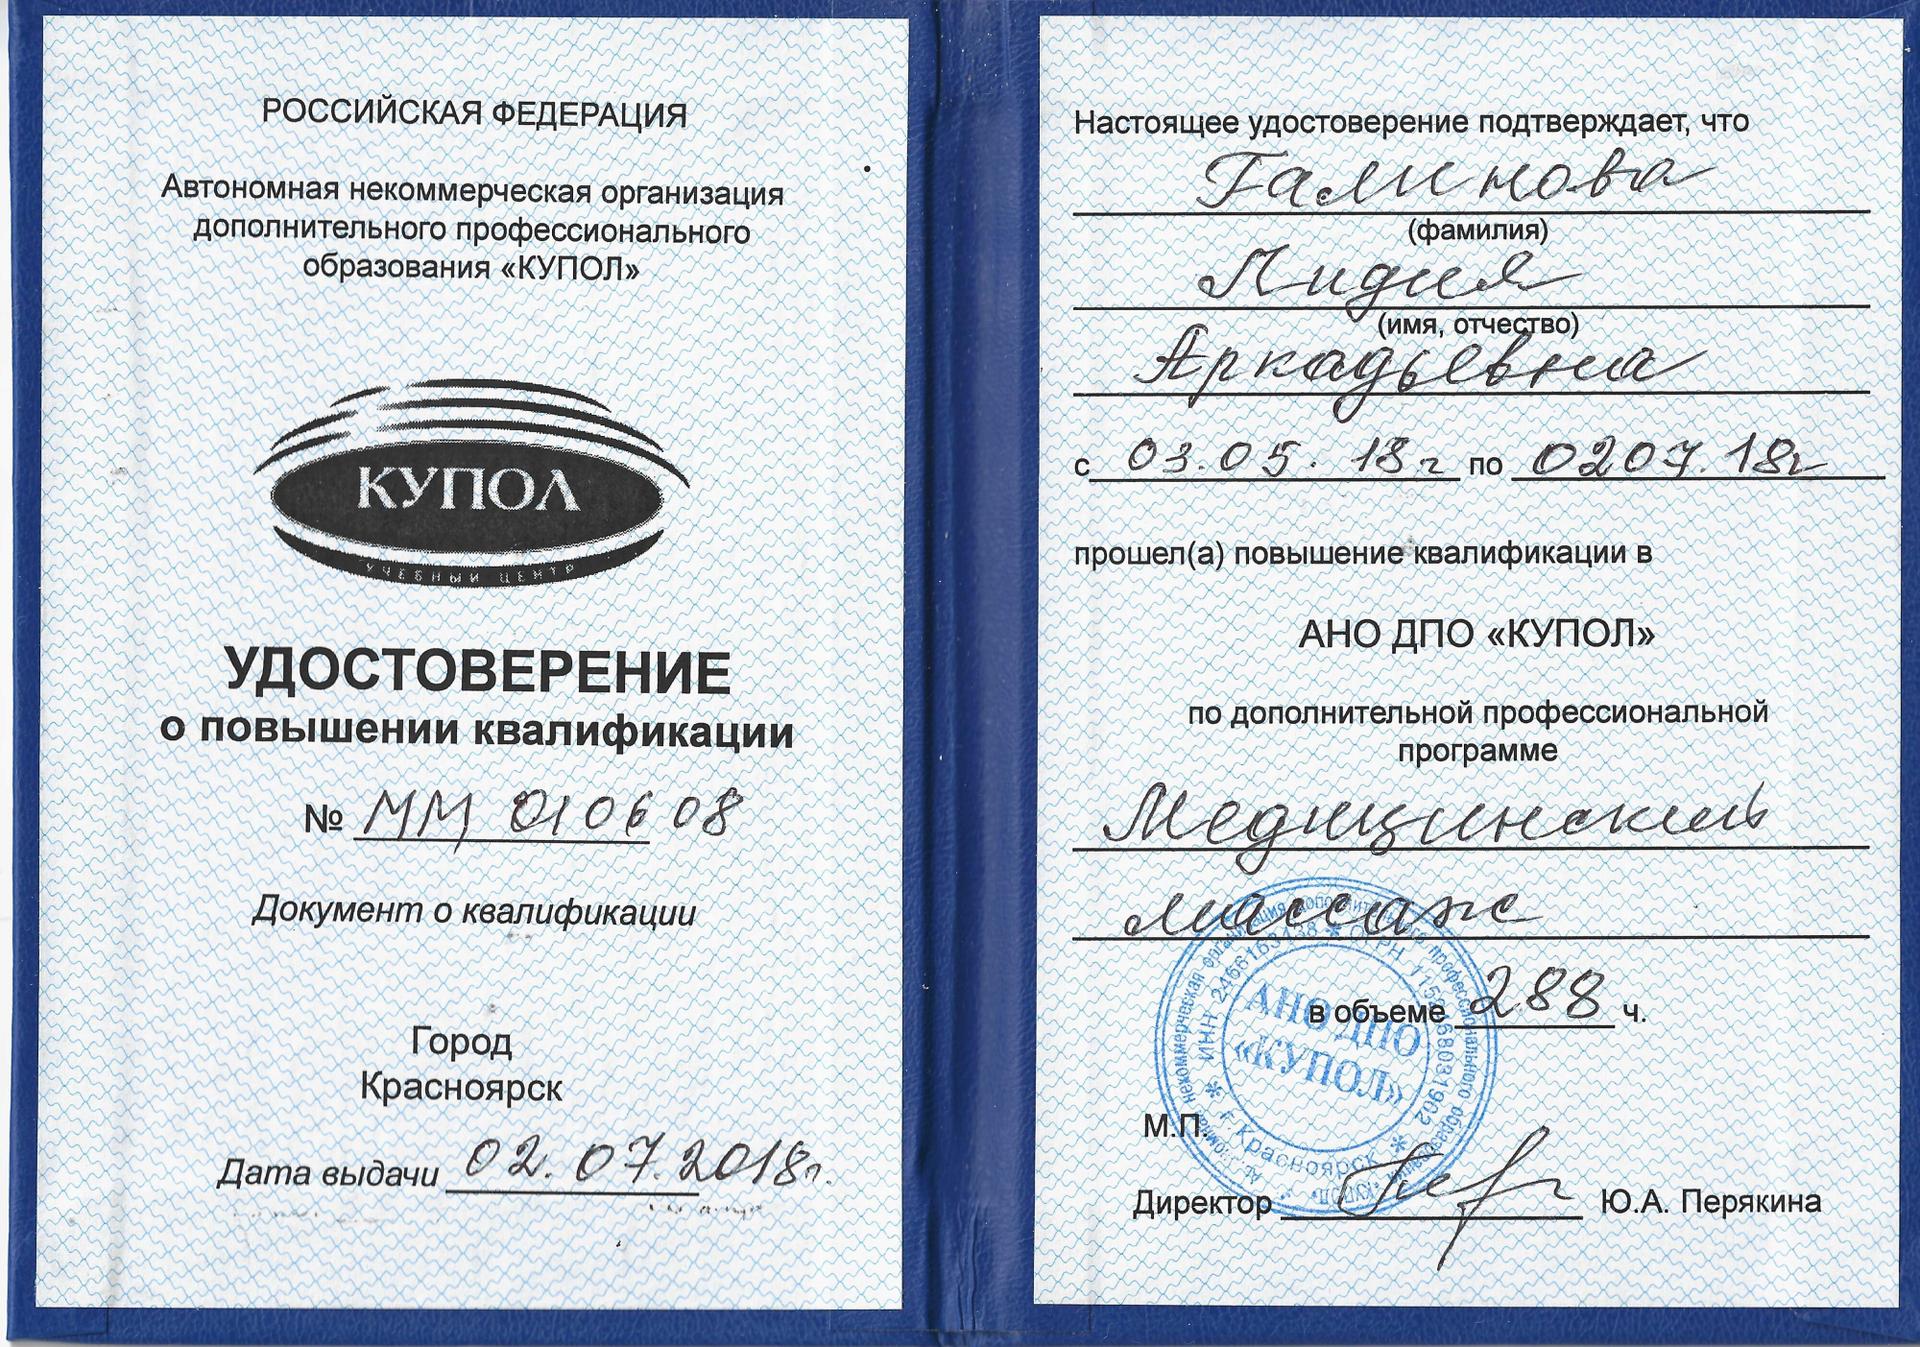 РОССИЙСКАЯ ФЕДЕРАЦИЯ
Автономная некоммерческая организация
дополнительного профессионального
образования «КУПОЛ»
КУПОЛ
УЧЕБНЫЙ ЦЕНТР
УДОСТОВЕРЕНИЕ
о повышении квалификации
№ ММ 010608
Документ о квалификации
Город
Красноярск
Дата выдачи 02.07.2018г.
Настоящее удостоверение подтверждает, что
Галинова
(фамилия)
Лидия
(имя, отчество)
Аркадьевна
с 03.05.18г по 0207.18г
прошел(а) повышение квалификации в
АНО ДПО «КУПОЛ»
по дополнительной профессиональной
программе
Медицинский
массаж
в объеме 288 ч.
АНО ДПО
«КУПОЛ»
г. Красноярск
М.П.
Директор Ю.А. Перякина